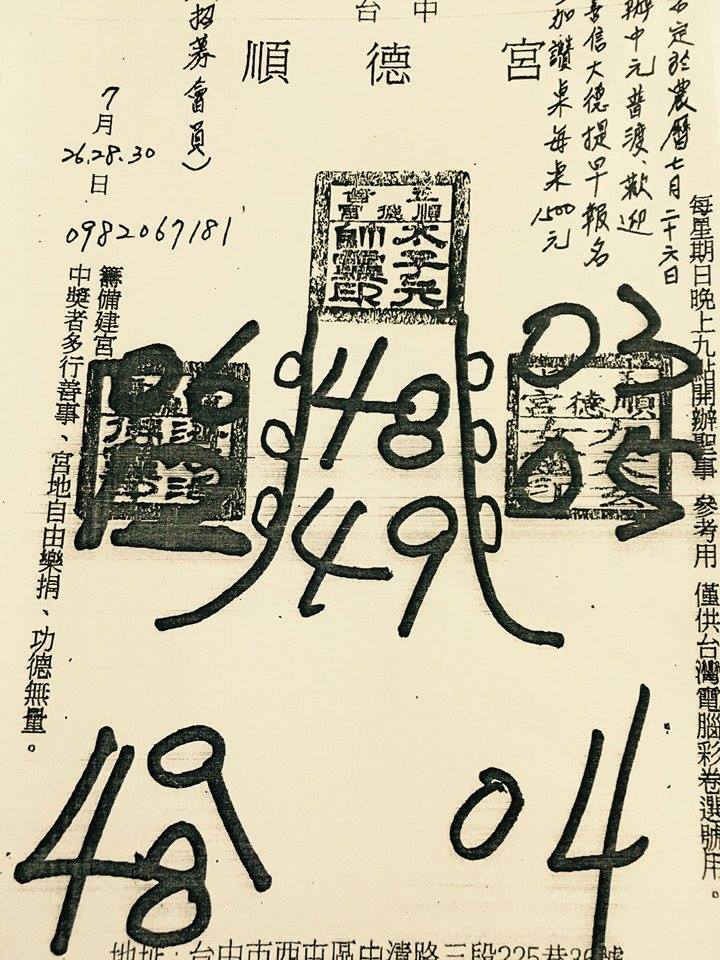 台中
順德宮
招募會員）
定於農曆七月二十六日
辦中元普渡、歡迎
善信大德提早報名
加讚桌每桌1500元
7
月
26.28.30
日
0982067181
每星期日晚上九點開辦聖事 參考用 僅供台灣電腦彩卷選號用。
太子元
帥靈印
順德宮
03
04
48
49
06
12
籌備建宮
中獎者多行善事、宮地自由樂捐、功德無量。
9
48
04
地址：台中市西屯區中清路三段225巷36號